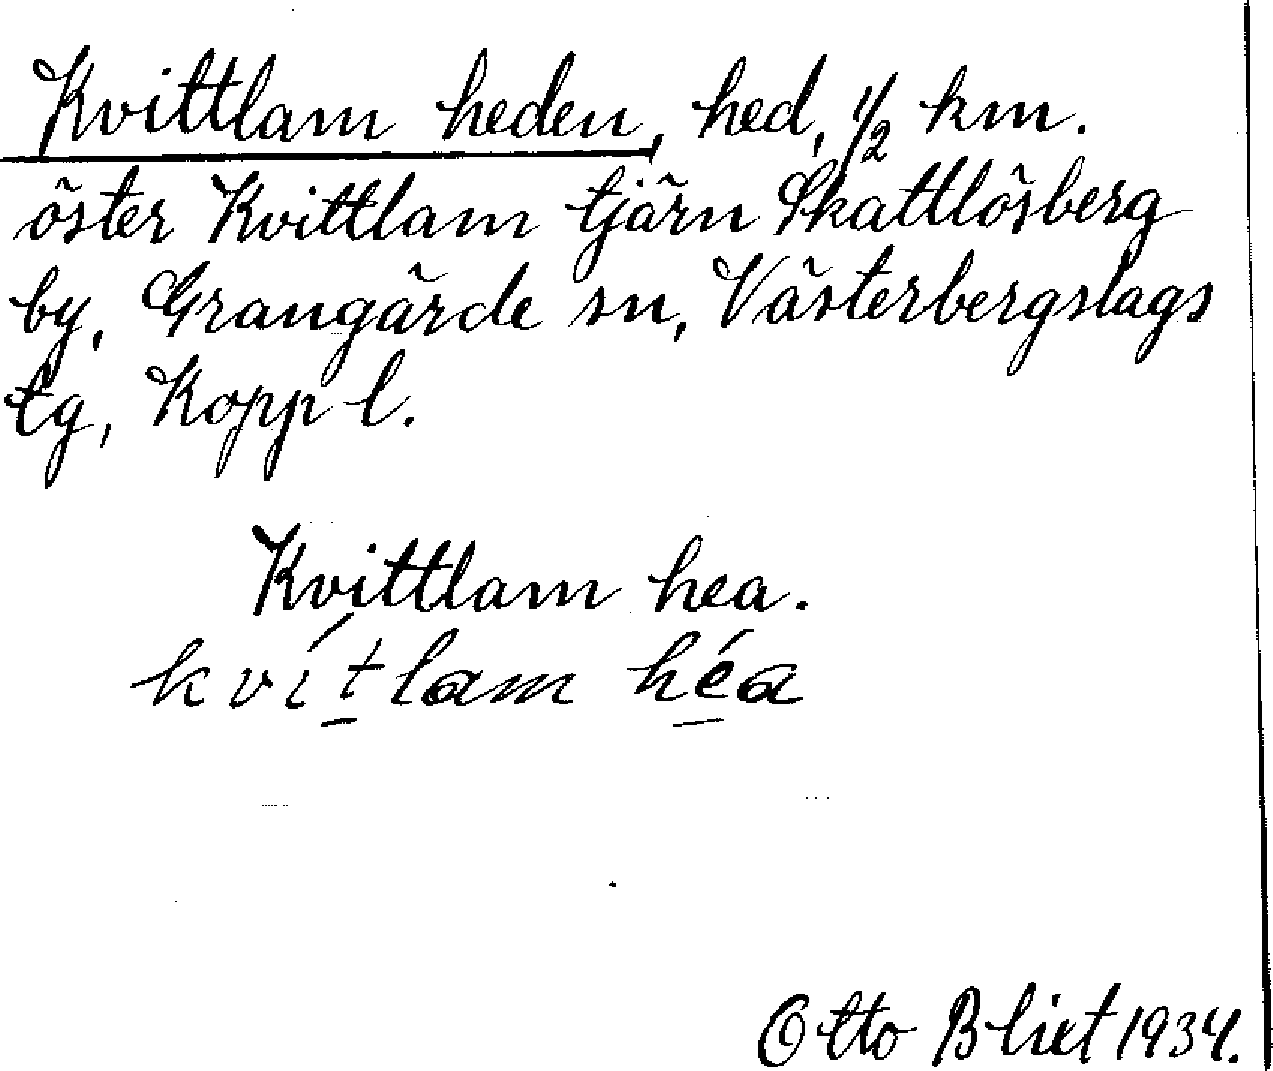 Kvittlam heden, hed, 1/2 km.
öster Kvittlam tjärn Skattlösberg
by, Grangärde sn, Västerbergslags
tg, Kopp l.
Kvittlam hea.
kvítlam héa
Otto Blixt 1934.